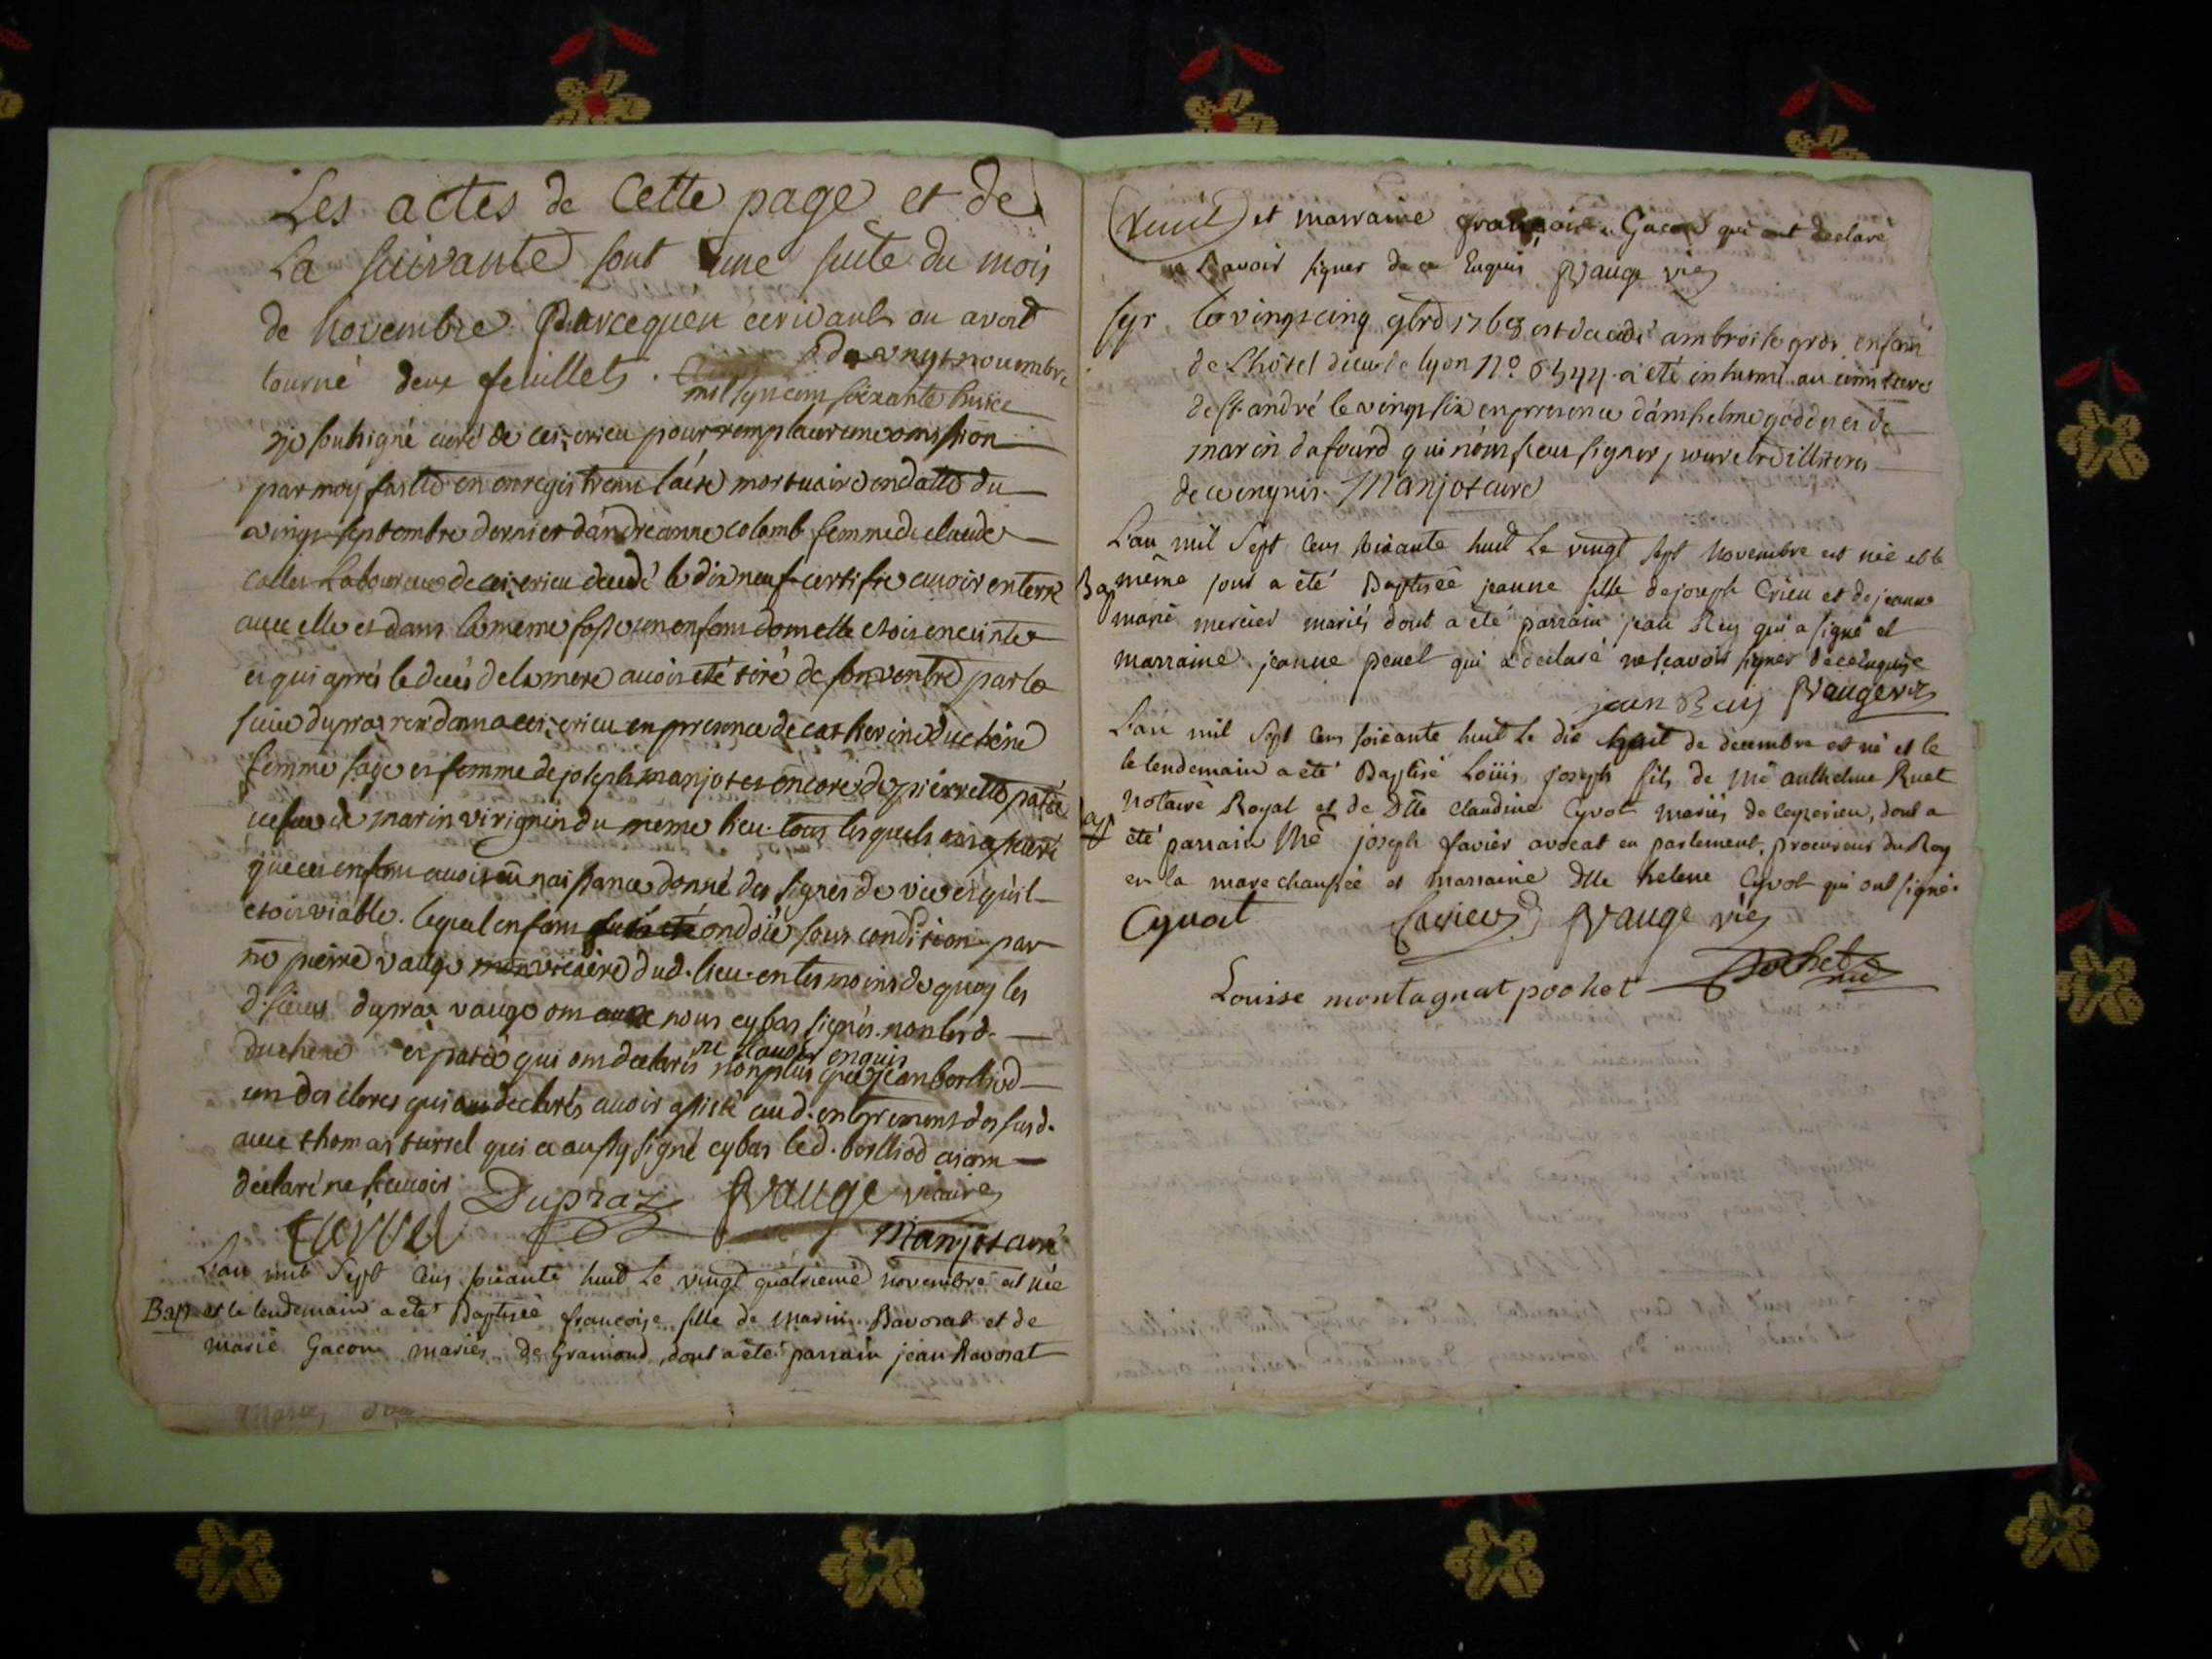 Les actes de Cette page et de
La suivante sont une suite du mois
de Novembre. Parcequ'en ecrivant on avoit
tourné deux feuillets. du vingt novembre
mil sept cent soixante huict
je soussigné curé de ceizerieu pour remplacer une omission
par moy faitte en enregistrant l'acte mortuaire en datte du
vingt septembre dernier d'andréanne colomb femme de claude
callet Laboureur de ceizerieu decedé le dix neuf certifie avoir enterré
avec elle et dans la meme fosse un enfant dont elle etoit enceinte
et qui aprés le decés de la mere avoit eté tiré de son ventre par le
sieur dupraz a ceizerieu en presence de catherine duchene
femme sage et femme de joseph manjot et encore de pierrette patée
de marin virignin du meme lieu. tous lesquels ont assuré
que cet enfant avoit en naissance donné des signes de vie et qu'il
etoit viable. lequel enfant ondoié sous condition par
me pierre vauge mon vicaire dud. lieu en temoins de quoy les
d. sieurs dupraz vauge ont avec nous cy bas signés. non lesd.
duchene et patée qui ont declarés ne scavoir enquis
non plus que jean borlliod
un des cleres qui ont declarés avoir assisté aud. enterrement des susd.
avec thomas turrel qui a aussy signé cy bas led. borlliod aiant
declaré ne scavoir Dupraz PVauge vicaire
turrel Manjot curé
L'an mil sept cens soixante huit Le vingt quatrieme novembre est née
Bap. et le lendemain a eté Baptisée françoise fille de marin Ravorat et de
marie Gacon mariés de Gramond, dont a été parrain jean Ravorat
et marraine françoise Gacon qui ont declaré
ne scavoir signer de ce Enquis PVauge vic
Sep. le vingt cinq 9bre 1768 est decedé ambroise gros enfant
de L'hôtel dieu de lyon No 6544 a été inhumé au cimetiere
de St andré le vingt six en presence d'anthelme goddet et de
marin dufourd qui n'ont sceu signer pour etre illiteres
de ce enquis. Manjot curé
L'an mil Sept Cens soixante huit Le vingt sept Novembre est née et le
Bap même jour a été Baptisée jeanne fille de joseph Crieu et de jeanne
marie mercier mariés dont a été parrain jean Rey qui a signé et
marraine jeanne penel qui a declaré ne scavoir signer de ce Enquise
jean Rey PVauge vic
L'an mil Sept Cens soixante huit Le dix huit de decembre est né et le
le lendemain a été Baptisé Loüis joseph fils de Me anthelme Ruet
Notaire Royal et de Dlle Claudine Cyvot mariés de Ceyzerieu, dont a
Bap été parrain Me joseph favier avocat en parlement, procureur du Roy
en la marechaussée et marraine Dlle helene Cyvot qui ont signé.
Cyvot favier PVauge vic
Louise montagnat pochet Pochet